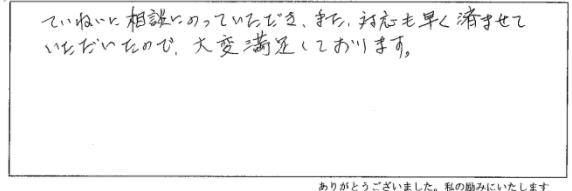 ていねいに相談にのっていただき、また、対応も早く済ませて
いただいたので、大変満足しております。
ありがとうございました。私の励みにいたします